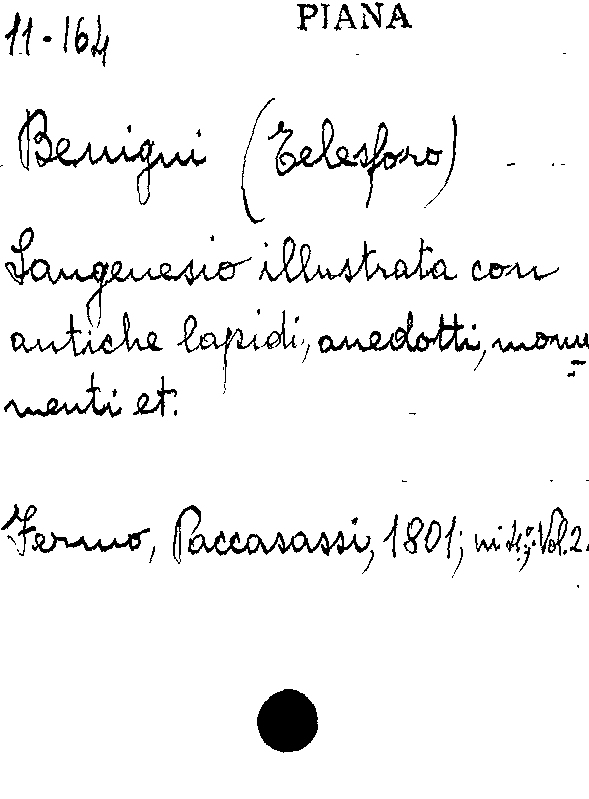 PIANA
11-164
Benigni (Telesforo)
Sangenesio illustrata con
antiche lapidi, anedotti, monu=
menti et.
Fermo, Paccasassi, 1801; in 4°; Vol. 2.